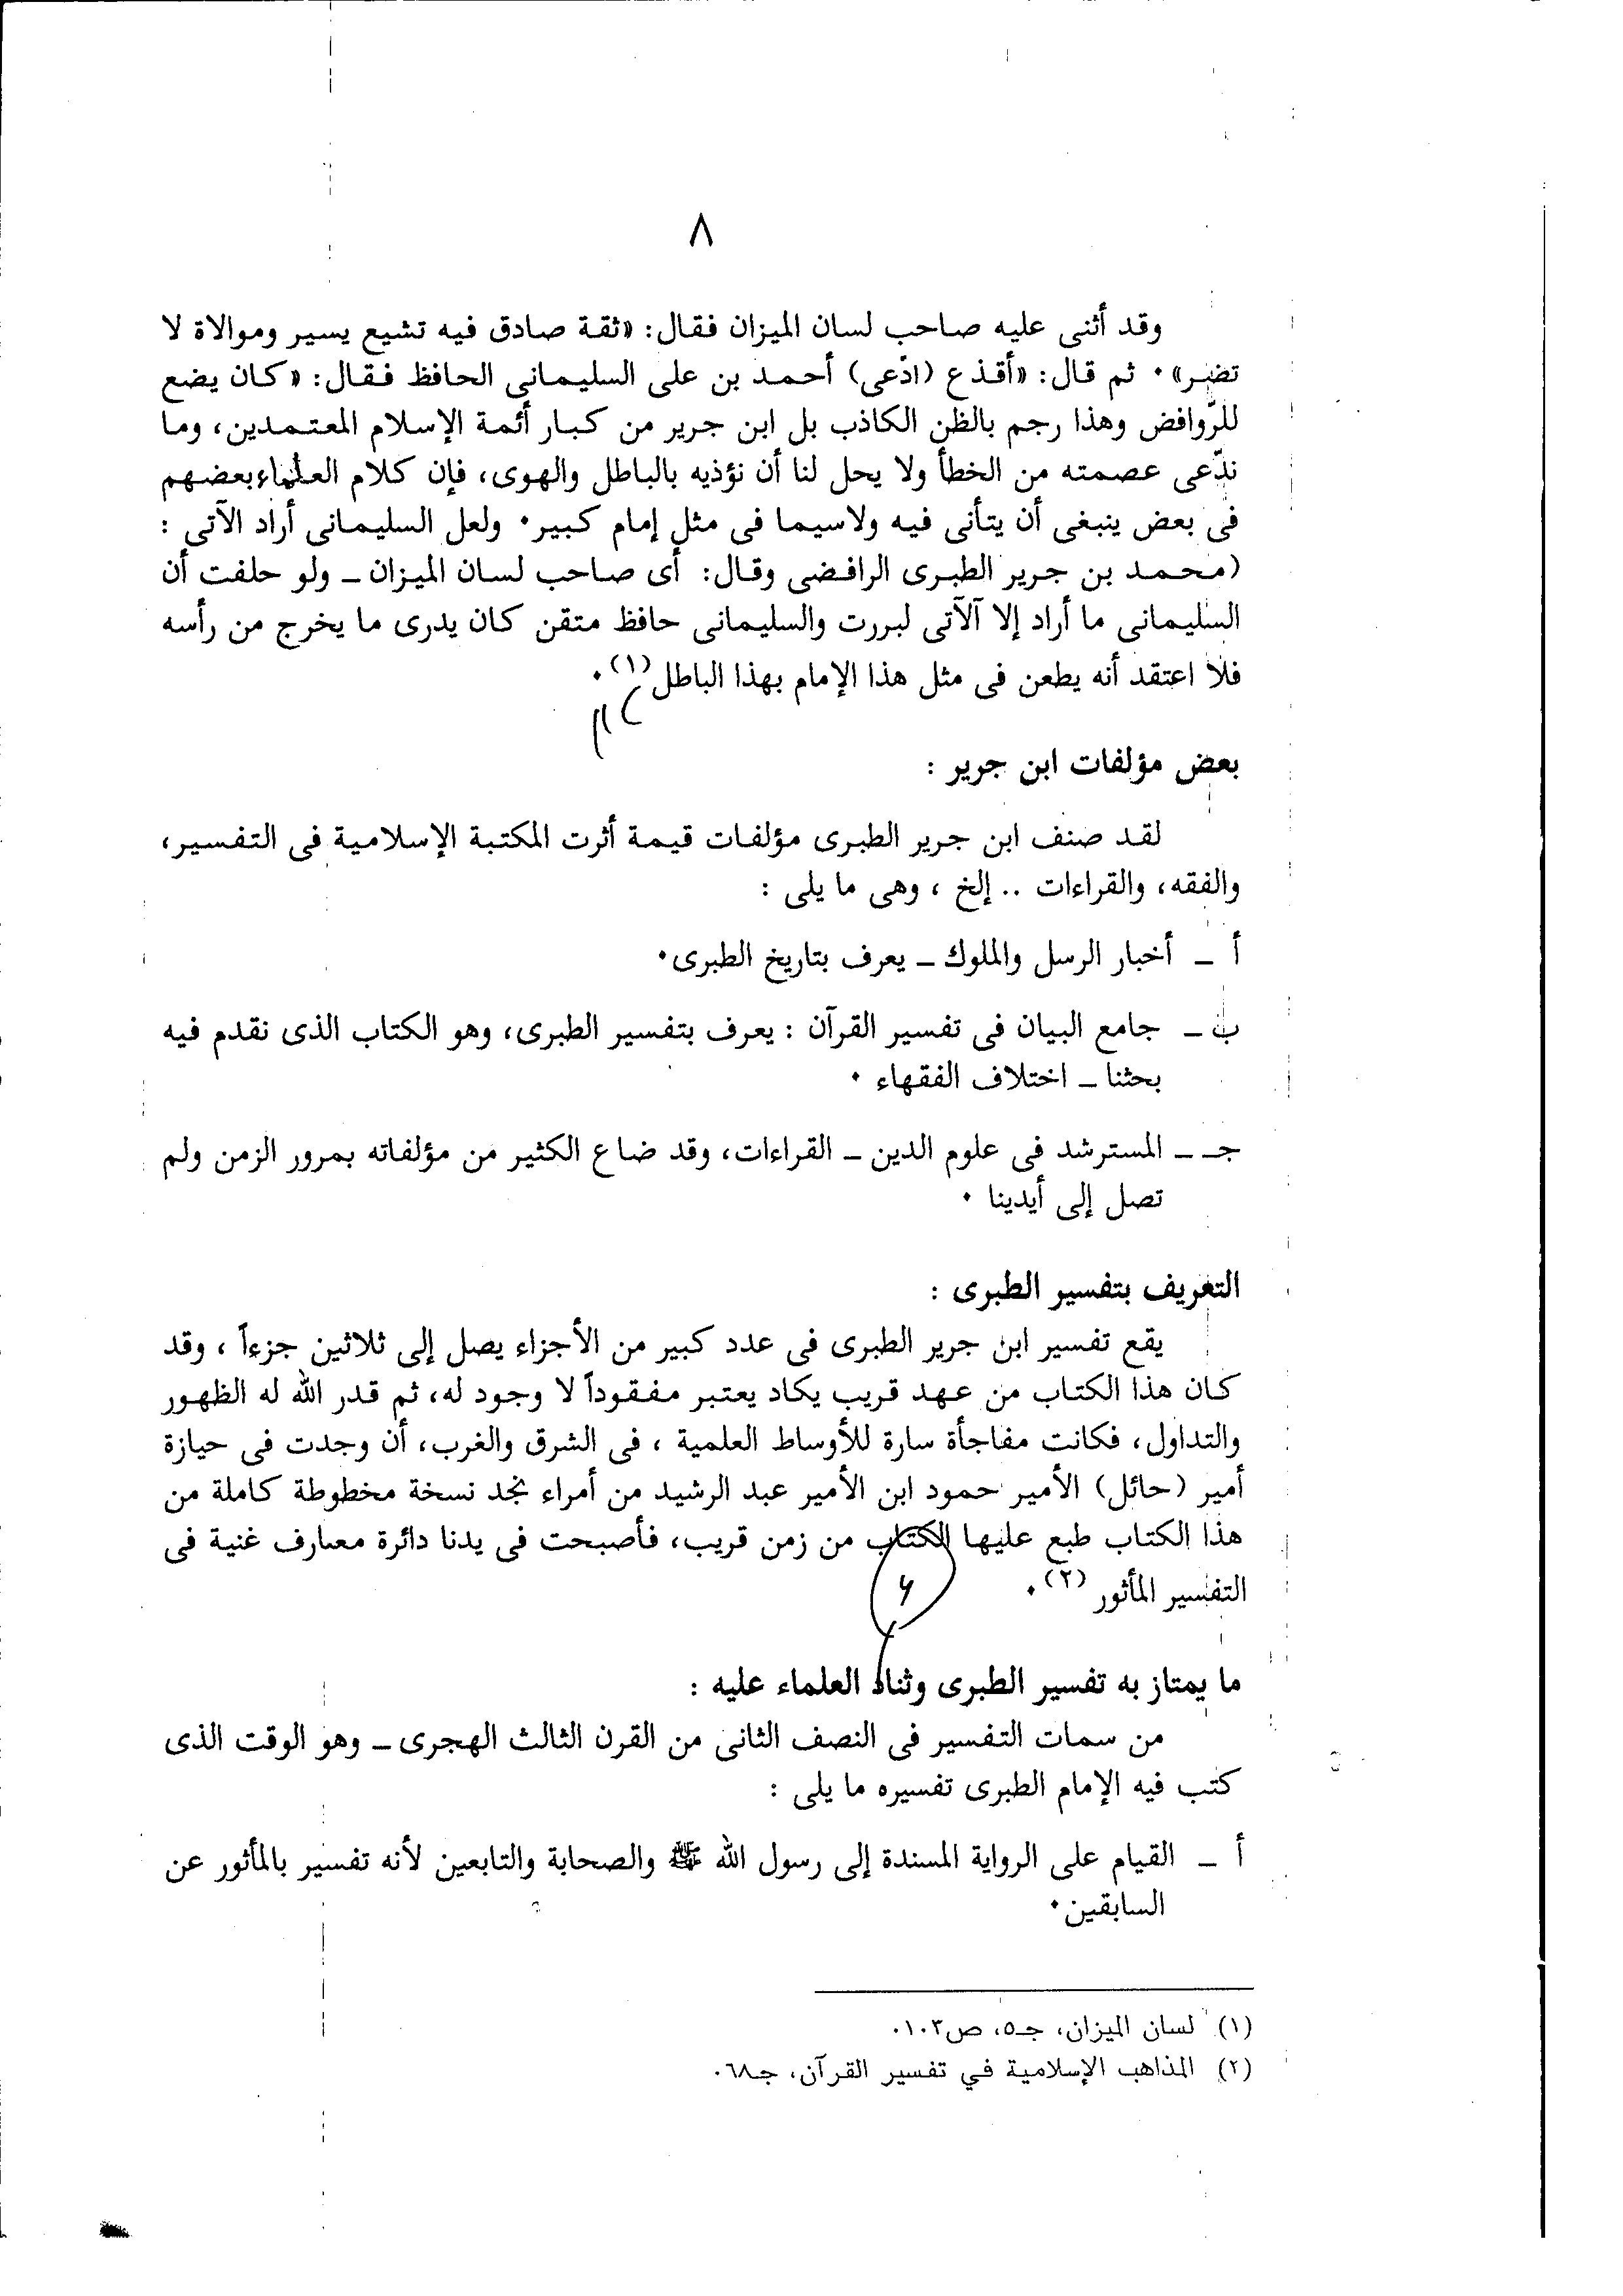 ٨
وقد أثنى عليه صاحب لسان الميزان فقال: «ثقة صادق فيه تشيع يسير وموالاة لا
تضر» . ثم قال: «أقذع (ادّعى) أحمد بن على السليمانى الحافظ فقال: «كان يضع
للرّوافض وهذا رجم بالظن الكاذب بل ابن جرير من كبار أئمة الإسلام المعتمدين، وما
ندّعى عصمته من الخطأ ولا يحل لنا أن نؤذيه بالباطل والهوى، فإن كلام العلماء بعضهم
فى بعض ينبغى أن يتأنى فيه ولاسيما فى مثل إمام كبير. ولعل السليمانى أراد الآتى :
(محمد بن جرير الطبرى الرافضى وقال: أى صاحب لسان الميزان ــ ولو حلفت أن
السليمانى ما أراد إلا الآتى لبررت والسليمانى حافظ متقن كان يدرى ما يخرج من رأسه
فلا اعتقد أنه يطعن فى مثل هذا الإمام بهذا الباطل (١) .
بعض مؤلفات ابن جرير :
لقد صنف ابن جرير الطبرى مؤلفات قيمة أثرت المكتبة الإسلامية فى التفسير،
والفقه، والقراءات .. إلخ ، وهى ما يلى :
أ ــ أخبار الرسل والملوك ــ يعرف بتاريخ الطبرى.
ب ــ جامع البيان فى تفسير القرآن : يعرف بتفسير الطبرى، وهو الكتاب الذى نقدم فيه
بحثنا ــ اختلاف الفقهاء .
جـ ــ المسترشد فى علوم الدين ــ القراءات، وقد ضاع الكثير من مؤلفاته بمرور الزمن ولم
تصل إلى أيدينا .
التعريف بتفسير الطبرى :
يقع تفسير ابن جرير الطبرى فى عدد كبير من الأجزاء يصل إلى ثلاثين جزءاً ، وقد
كان هذا الكتاب من عهد قريب يكاد يعتبر مفقوداً لا وجود له، ثم قدر الله له الظهور
والتداول، فكانت مفاجأة سارة للأوساط العلمية ، فى الشرق والغرب، أن وجدت فى حيازة
أمير (حائل) الأمير حمود ابن الأمير عبد الرشيد من أمراء نجد نسخة مخطوطة كاملة من
هذا الكتاب طبع عليها الكتاب من زمن قريب، فأصبحت فى يدنا دائرة معارف غنية فى
التفسير المأثور (٢) .
ما يمتاز به تفسير الطبرى وثناء العلماء عليه :
من سمات التفسير فى النصف الثانى من القرن الثالث الهجرى ــ وهو الوقت الذى
كتب فيه الإمام الطبرى تفسيره ما يلى :
أ ــ القيام على الرواية المسندة إلى رسول الله ﷺ والصحابة والتابعين لأنه تفسير بالمأثور عن
السابقين.
(١) لسان الميزان، جـ٥، ص١٠٣.
(٢) المذاهب الإسلامية في تفسير القرآن، جـ٦٨.